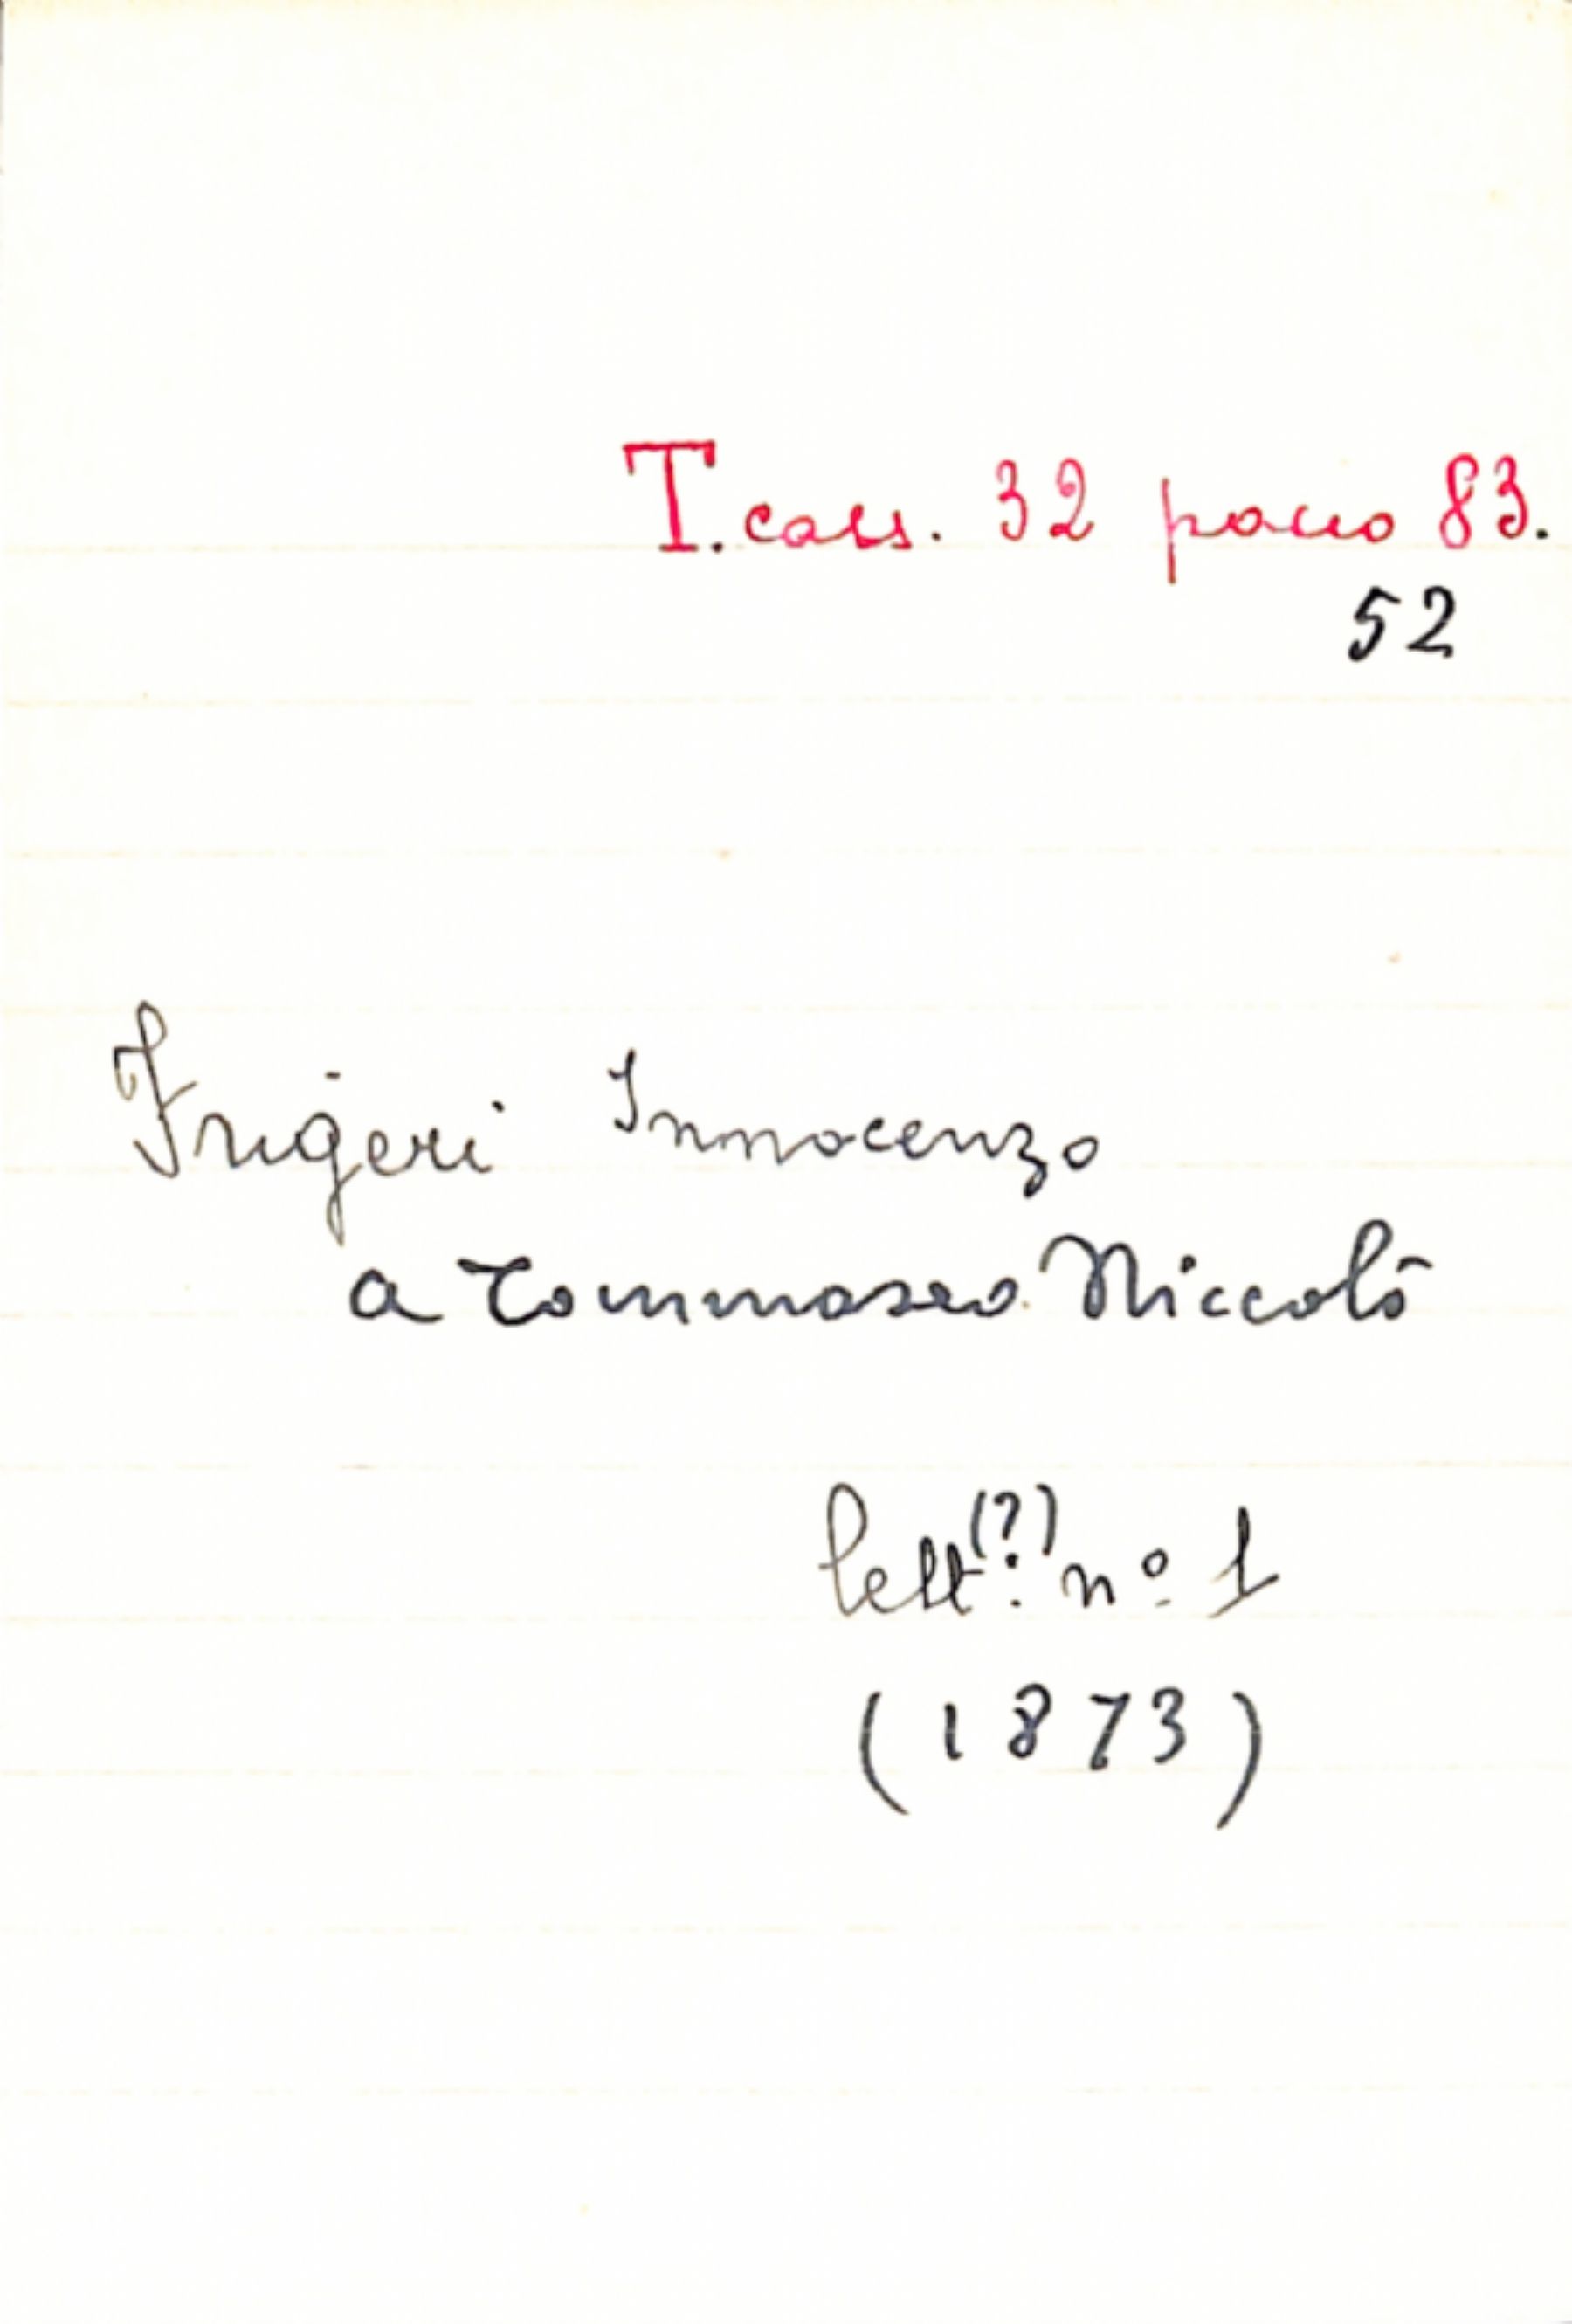 T. cass. 32 pacco 83.
52
Frigeri Innocenzo
a Tommaseo Niccolò
lett.(?) nº 1
(1873)